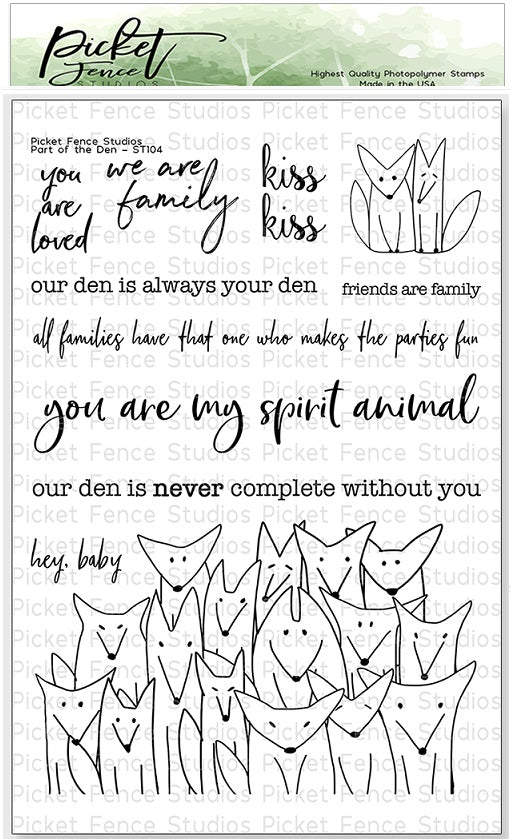 Picket
Fence
STUDIOS
Highest Quality Photopolymer Stamps
Made in the USA
Picket Fence Studios
Part of the Den - ST104
you
are
loved
we are
family
kiss
kiss
our den is always your den
friends are family
all families have that one who makes the parties fun
you are my spirit animal
our den is never complete without you
hey, baby